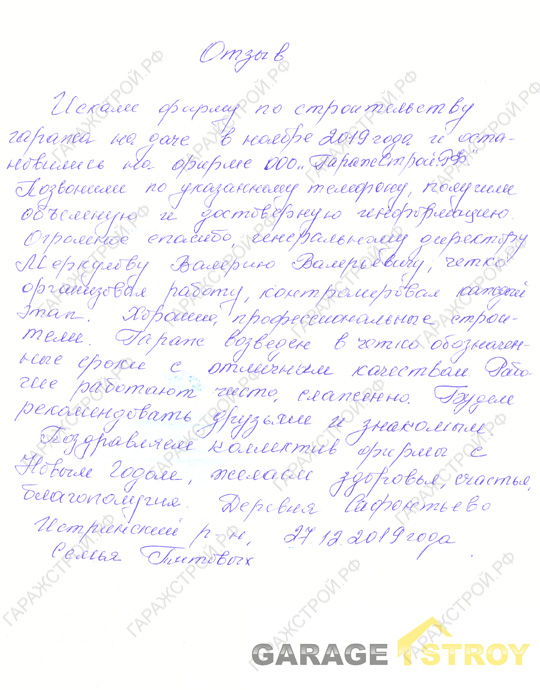 Отзыв
Искали фирму по строительству
гаража на даче в ноябре 2019 года и оста-
новились на фирме ООО "ГаражСтройРФ.
Позвонили по указанному телефону, получили
объемную и достоверную информацию.
Огромное спасибо, генеральному директору
Меркулову Валерию Валерьевичу, четко
организовал работу, контролировал каждый
этап. Хорошие, профессиональные строи-
тели. Гараж возведен в четко обозначен-
ные сроки с отличным качеством Рабо-
чие работают чисто, слаженно. Будем
рекомендовать друзьям и знакомым
Поздравляем коллектив фирмы с
Новым Годом, желаем здоровья, счастья,
благополучия. Деревня Сафонтьево
Истринский р-н, 27.12.2019 года
Семья
GARAGE STROY
ГАРАЖСТРОЙ.РФ